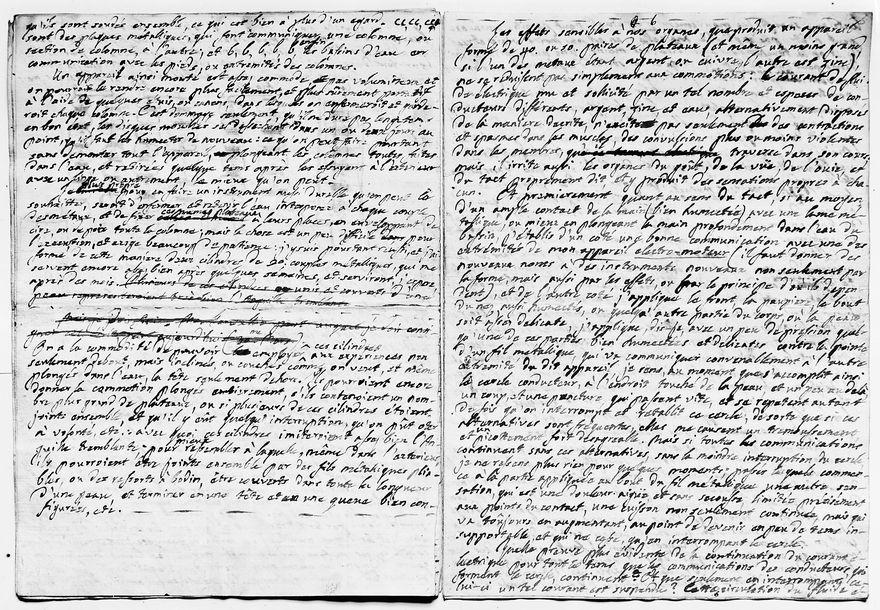 qu'ils sont soudés ensemble, ce qui est bien à plus d'un egard. CCCC, CCC
sont des plaques metalliques, qui font communiquer une colonne, ou
section de colonne, à l'autre; et b, b, b, b, b, b bassins d'eau en
communication avec les pieds, ou extremités des colonnes.
Un appareil ainsi monté est assez commode, et pas volumineux, et
on pourroit le rendre encore plus facilement, et plus surement portatif
à l'aide de quelques etuis, ou canons, dans lesquels on enfermeroit
roit chaque colonne. C'est dommage seulement, qu'il ne dure pas longtems
en bon etat; les disques mouillés se dessechant dans un ou deux jours au
point, qu'il faut les humecter de nouveau: ce qu'on peut faire pourtant
sans demonter tout l'appareil, en plongeant les colonnes toutes faites
dans l'eau, et les essuyant à l'exterieur
avec un linge, le mieux qu'on peut.
pour en faire un instrument aussi durable qu'on peut le
souhaiter, seroit d'enfermer et retenir l'eau interposée à chaque couple
des metaux, et de fixer ces plateaux à leurs places, en enveloppant de
cire, ou de poix toute la colonne; mais la chose est un peu difficile pour
l'execution, et exige beaucoup de patience: j'y suis pourtant reussi, et j'ai
formé de cette maniere deux cylindres de 20. couples metalliques, qui me
servent encore assez bien après quelques semaines, et serviront, j'espere
après des mois.
On a la commodité de pouvoir employer ces cilindres aux experiences non
seulement debout, mais inclinés, ou couchés comme on veut, et même
plongés dans l'eau, la tête seulement dehors: ils pourroient encore
donner la commotion plongés entierement, s'ils contenoient un nom-
bre plus grand de plateaux, ou si plusieurs de ces cilindres etoient
joints ensemble, et qu'il y eut quelque interruption, qu'on put oter
à volonté, etc.: avec quoi ces cilindres imiteroient assez bien l'An-
guille tremblante, pour ressembler mieux à laquelle, même dans l'exterieur
ils pourroient être joints ensemble par des fils metalliques plia-
bles, ou des ressorts à bodin, être couverts dans toute la longueur
d'une peau, et terminer en une tête et une queue bien con-
figurées, etc.
Les effets sensibles à nos organes, que produit un appareil
formé de 40. ou 50. paires de plateaux (et même un moins grand
si l'un des metaux étant argent, ou cuivre, l'autre est zinc)
ne se reduisent pas simplement aux commotions: le courant de flui-
de electrique mu et solicité par un tel nombre et especes de con-
ducteurs differents, argent, zinc et eau, alternativement disposés
de la maniere decrite, n'excite pas seulement des contractions
et spasmes dans les muscles, des convulsions plus ou moins violentes
dans les membres, qu'il traverse dans son cours,
mais il irrite aussi les organes du goût, de la vue, de l'ouie, et
du tact proprement dit et y produit des sensations propres à cha-
cun.
Et premierement quant au sens du tact, si au moyen
d'un ample contact de la main (bien humectée) avec une lame mé-
tallique, ou mieux en plongeant la main profondement dans l'eau du
bassin, j'etablis d'un coté une bonne communication avec une des
extremités de mon appareil electro-moteur (il faut donner des
nouveaux noms à des instruments nouveaux non seulement par
la forme, mais aussi par les effets, ou par le principe d'où ils depen-
dent), et de l'autre coté j'applique le front, la paupiere, le bout
du nez aussi humectés, ou quelqu'autre partie du corps où la peau
soit assez delicate, j'applique, dis-je, avec un peu de pression quel-
qu'une de ces parties bien humectées et delicates contre la pointe
d'un fil metallique, qui va communiquer convenablement à l'autre
extremité du dit appareil, je sens, au moment que s'accomplit ainsi
le cercle conducteur, à l'endroit touché de la peau, et un peu au delà
un coup, et une puncture, qui passent vite, et se repetent autant
de fois qu'on interrompt et retablit ce cercle; de sorte que si ces
alternatives sont frequentes, elles me causent un tremoussement
et un picottement fort desagreable. Mais si toutes les communications
continuent sans ces alternatives, sans la moindre interruption du cercle
je ne ressens plus rien pour quelques moments; passés lesquels commen-
ce à la partie appliquée au bout du fil metallique une autre sen-
sation, qui est une douleur aiguë et sans secousse, limitée precisément
aux points du contact, une cuison non seulement continuée, mais qui
va toujours en augmentant, au point de devenir en peu de tems in-
supportable, et qui ne cesse, qu'en interrompant le cercle.
Quelle preuve plus evidente de la continuation du courant é-
lectrique pour tout le tems que les communications des conducteurs, qui
forment le cercle, continuent? et que seulement en interrompant ce-
lui-ci un tel courant est suspendu? Cette circulation du fluide é-